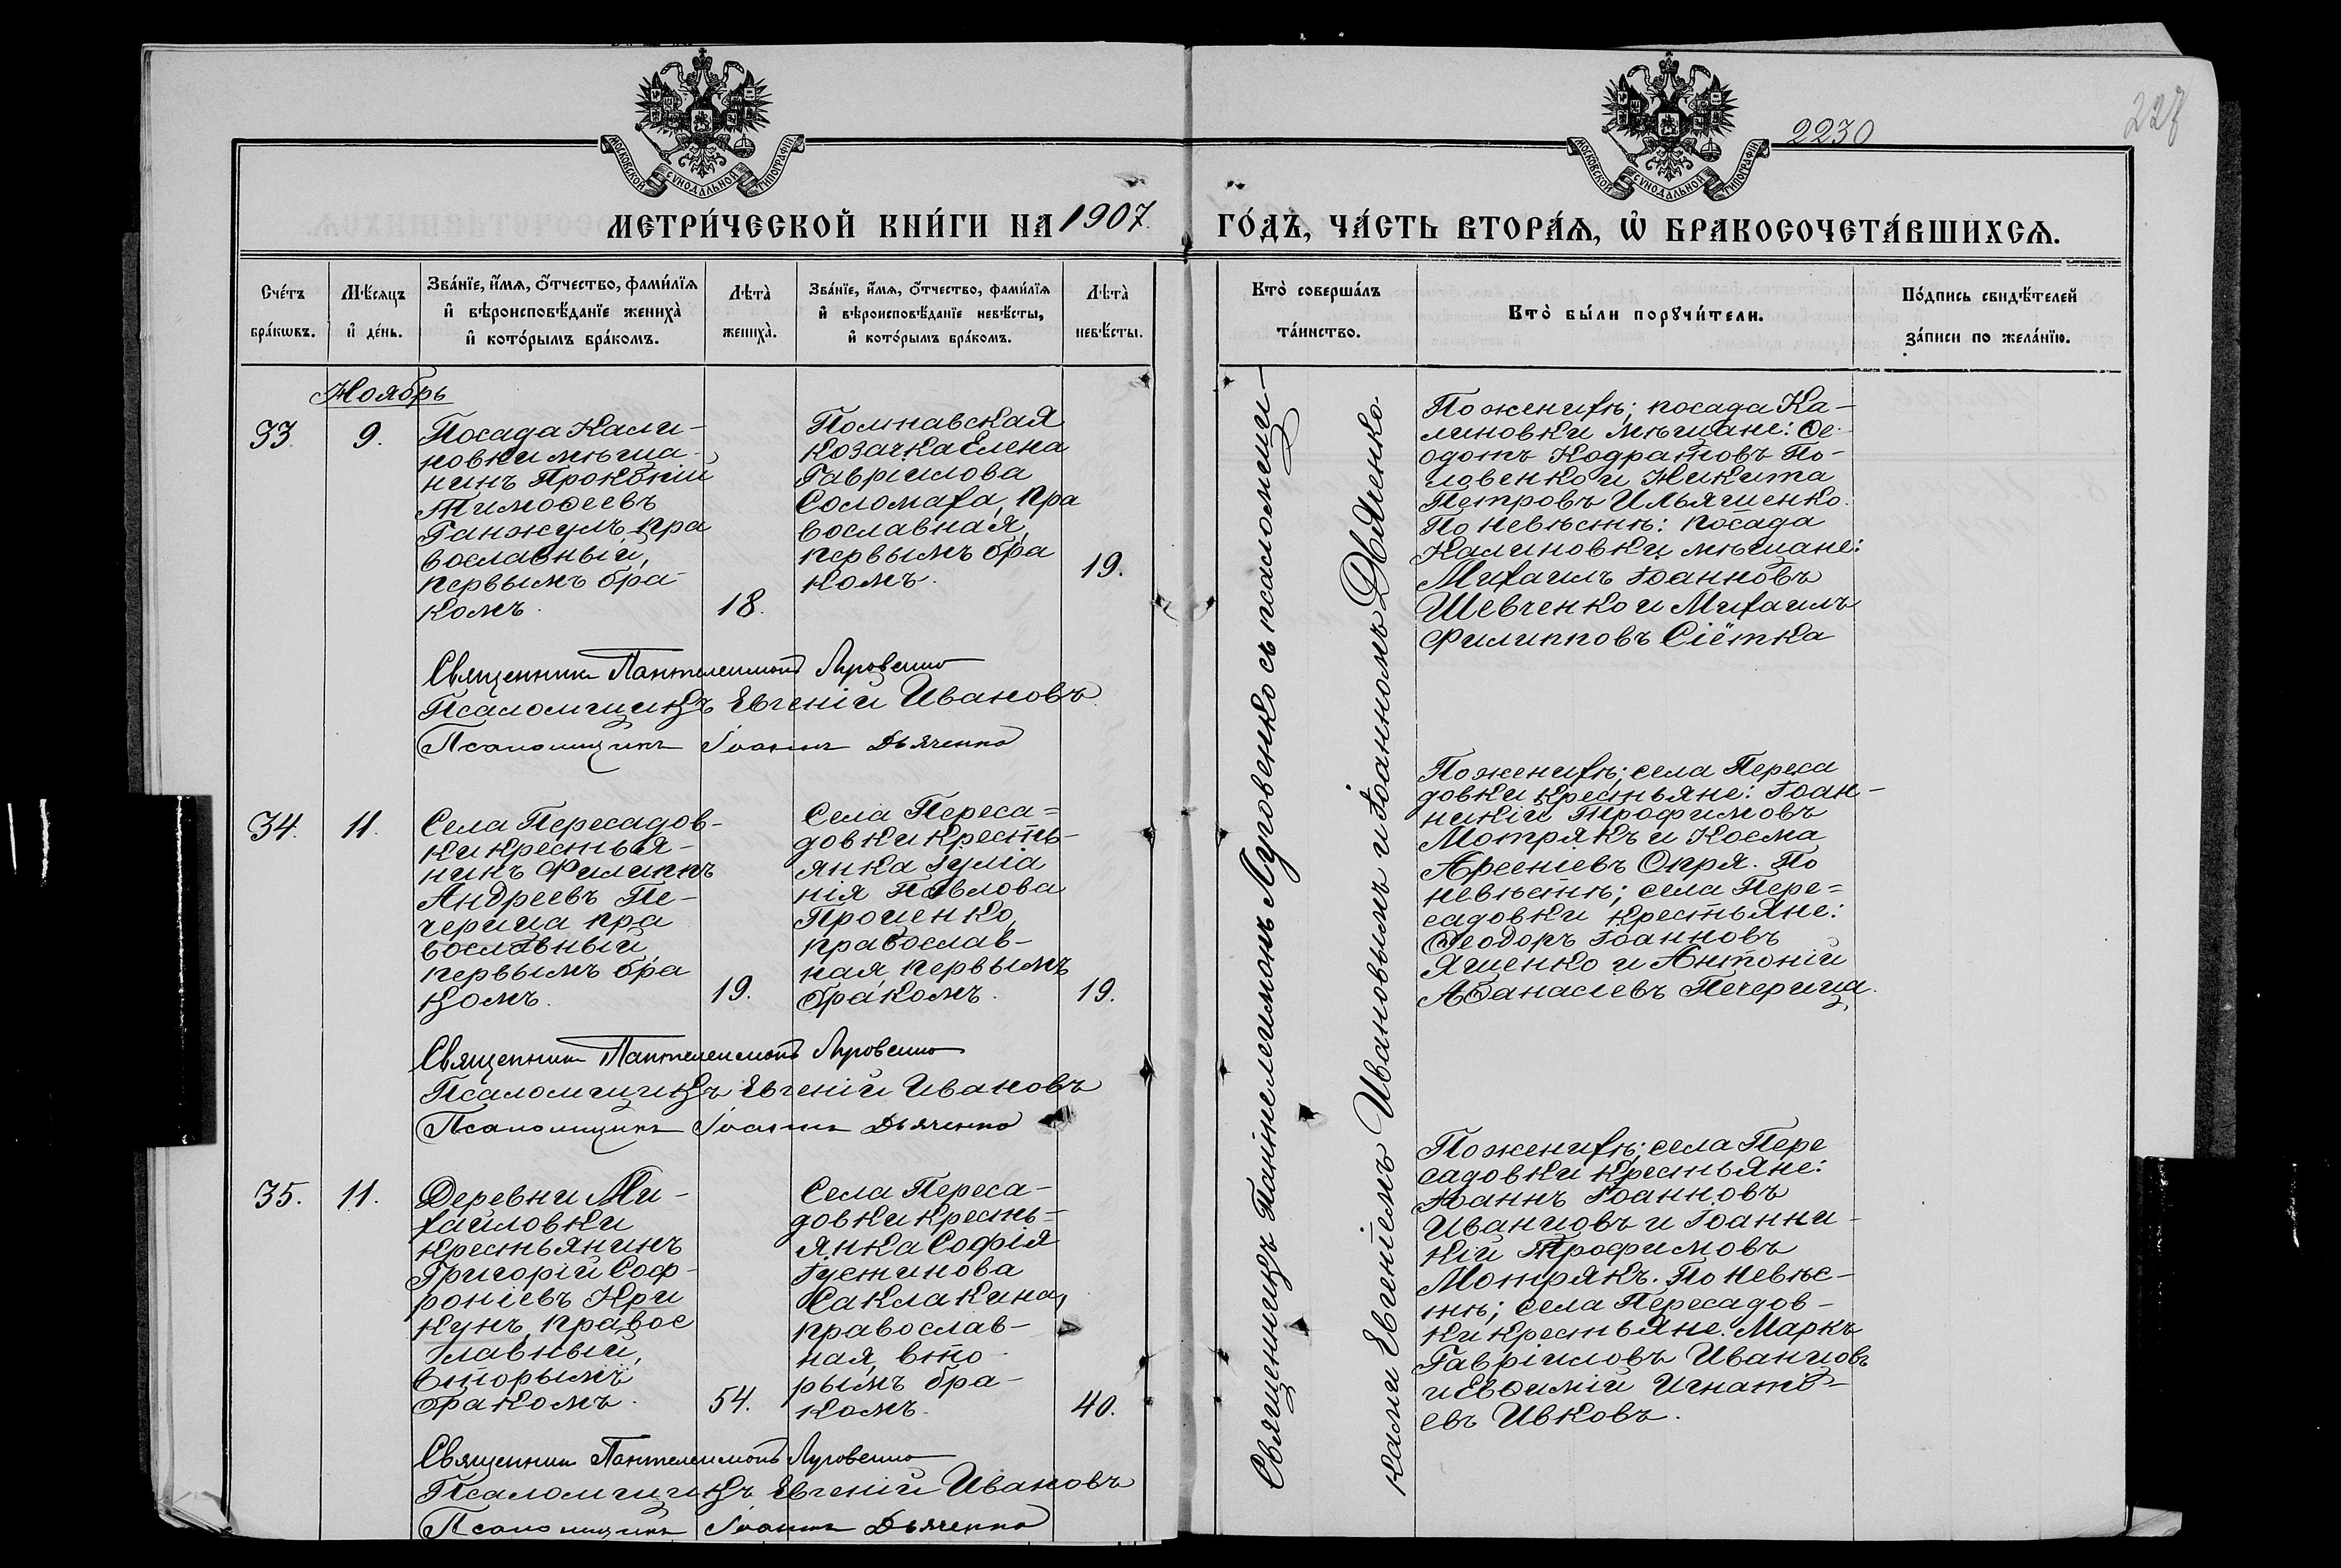 2230
227
МОСКОВСКОЙ СУНОДАЛЬНОЙ ТИПОГРАФІИ
МОСКОВСКОЙ СУНОДАЛЬНОЙ ТИПОГРАФІИ
МЕТРИ́ЧЕСКОЙ КНИ́ГИ НА 1907. ГО́ДЪ, ЧА́СТЬ ВТОРА́Ѧ, Ѽ БРАКОСОЧЕТА́ВШИХСѦ.
Сче́тъ бра́кѡвъ.
Мѣ́сяцъ и҆ де́нь.
Зва́нїе, и҆́мѧ, ѻ҆́тчество, фами́лїѧ
и҆ вѣроисповѣ́данїе жениха̀
и҆ кото́рымъ бра́комъ.
Лѣта̀ жениха̀.
Зва́нїе, и҆́мѧ, ѻ҆́тчество, фами́лїѧ
и҆ вѣроисповѣ́данїе невѣ́сты,
и҆ кото́рымъ бра́комъ.
Лѣта̀ невѣ́сты.
Кто̀ соверша́лъ та́инство.
Кто̀ бы́ли порꙋчи́тели.
По́дпись свидѣ́телей за́писи по жела́нїю.
Ноябрь
33.
9.
Посада Кали-
новки мѣща-
нинъ Прокопій
Тимоѳеевъ
Ганжулъ, пра
вославный,
первымъ бра-
комъ.
18.
Полтавская
козачка Елена
Гавріилова
Соломаха, пра
вославная,
первымъ бра
комъ.
19.
По женихѣ; посада Ка-
линовки мѣщане: Ѳе-
одотъ Кодратовъ По-
ловенко и Никита
Петровъ Ильяшенко.
По невѣстѣ: посада
Калиновки мѣщане:
Михаилъ Іоанновъ
Шевченко и Михаилъ
Филипповъ Сіётка
Священникъ Пантелеимонъ Луговенко
Псаломщикъ Евгеній Ивановъ
Псаломщикъ Іоаннъ Дьяченко
34.
11.
Села Пересадов-
ки крестья-
нинъ Филиппъ
Андреевъ Пе-
черица пра
вославный,
первымъ бра
комъ.
19.
Села Переса=
довки кресть-
янка Іулiа
нія Павлова
Проценко,
православ-
ная, первымъ
бракомъ.
19.
По женихѣ; села Переса
довки крестьяне: Іоан-
никій Трофимовъ
Мотрякъ и Косма
Арсеніевъ Опря. По
невѣстѣ; села Пере=
садовки крестьяне:
Ѳеодоръ Іоанновъ
Яценко и Антоній
Аѳанасіевъ Печерица.
Священникъ Пантелеимонъ Луговенко
Псаломщикъ Евгеній Ивановъ
Псаломщикъ Іоаннъ Дьяченко
35.
11.
Деревни Ми-
хайловки
крестьянинъ
Григорій Соф-
роніевъ Кри
кунъ, правос
лавный,
вторымъ
бракомъ.
54.
Села Переса-
довки кресть-
янка Софія
Іустинова
Саклакина,
православ-
ная, вто-
рымъ бра-
комъ.
40.
По женихѣ; села Пере
садовки крестьяне:
Іоаннъ Іоанновъ
Иванцовъ и Іоанни-
кій Трофимовъ
Мотрякъ. По невѣс-
тѣ; села Пересадов-
ки крестьяне. Маркъ
Гавріиловъ Иванцовъ
и Евѳимій Игнатi-
евъ Ивковъ.
Священникъ Пантелеимонъ Луговенко
Псаломщикъ Евгеній Ивановъ
Псаломщикъ Іоаннъ Дьяченко
Священникъ Пантелеимонъ Луговенко съ псаломщи-
ками Евгеніемъ Ивановымъ и Іоанномъ Дьяченко.